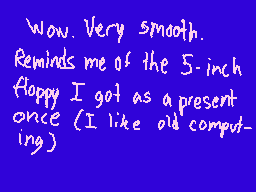 Wow. Very smooth.
Reminds me of the 5-inch
floppy I got as a present
once (I like old comput-
ing)